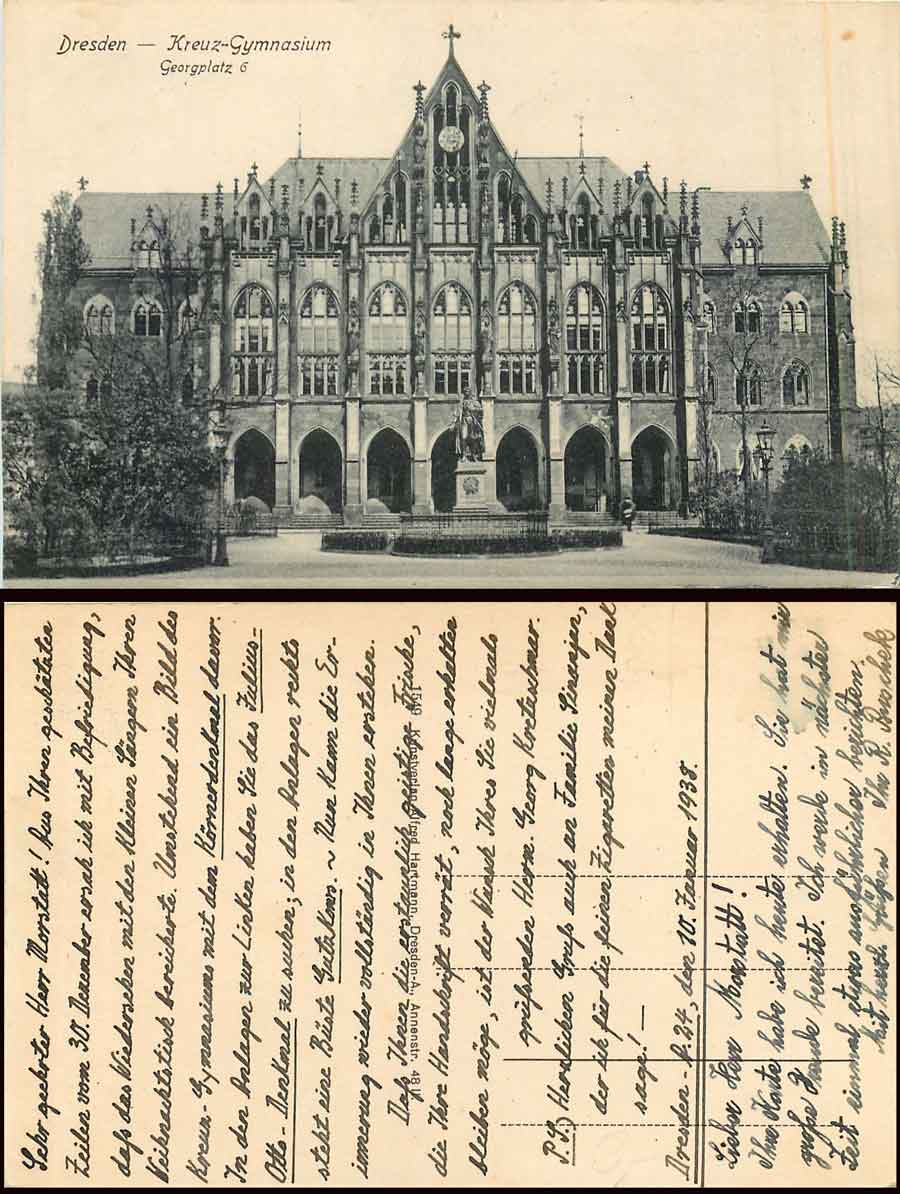 Dresden — Kreuz-Gymnasium
Georgplatz 6
Sehr geehrter Herr Morstatt! Aus Ihren geschätzten
Zeilen vom 30. Dezember ersah ich mit Befriedigung,
daß das Wiedersehen mit den kleinen Sängern Ihren
Weihnachtstisch bereicherte. Umstehend ein Bild des
Kreuz-Gymnasiums mit dem Körnerdenkmal davor.
In den Anlagen zur Linken haben Sie das Julius-
Otto-Denkmal zu suchen; in den Anlagen rechts
steht eine Büste Gutzkows. ~ Nun kann die Er-
innerung wieder vollständig in Ihnen erstehen.
Daß Ihnen die erstaunlich geistige Frische,
die Ihre Handschrift verrät, noch lange erhalten
bleiben möge, ist der Wunsch Ihres Sie vielmals
grüßenden Herm. Georg Kretzschmer.
P.S. Herzlichen Gruß auch an Familie
der ich für die feinen Zigaretten meinen Dank
sage! —
Dresden-A. 24, den 10. Januar 1938.
1549 Kunstverlag Alfred Hartmann, Dresden-A., Annenstr. 48
Lieber Herr Morstatt!
Ihre Karte habe ich heute erhalten. Sie hat mir
große Freude bereitet. Ich werde in nächster
Zeit einmal etwas ausführlicher berichten.
Mit herzl. Grüßen Ihr R.